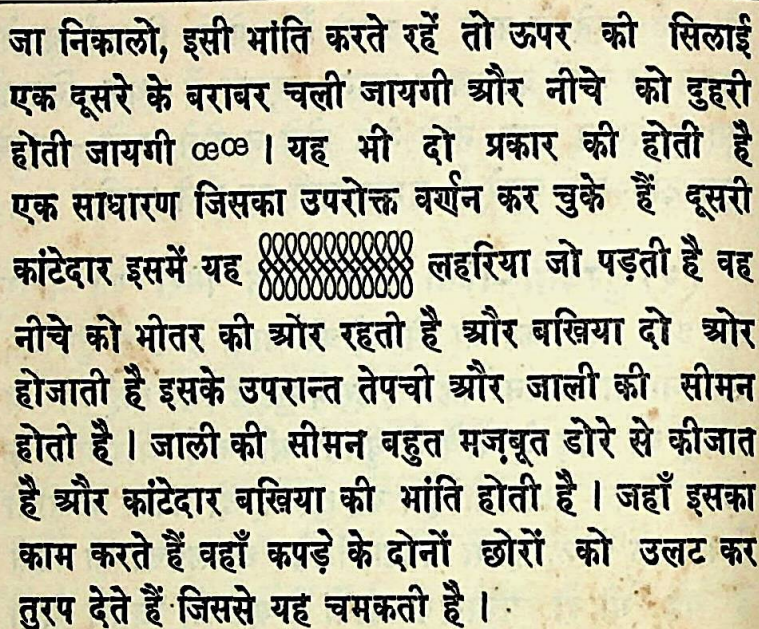 जा निकालो, इसी भांति करते रहें तो ऊपर की सिलाई
एक दूसरे के बराबर चली जायगी और नीचे को दुहरी
होती जायगी ꝏꝏ । यह भी दो प्रकार की होती है
एक साधारण जिसका उपरोक्त वर्णन कर चुके हैं दूसरी
कांटेदार इसमें यह लहरिया जो पड़ती है वह
नीचे को भीतर की ओर रहती है और बखिया दो ओर
होजाती है इसके उपरान्त तेपची और जाली की सीमन
होती है । जाली की सीमन बहुत मज़बूत डोरे से कीजात
है और कांटेदार बखिया की भांति होती है । जहाँ इसका
काम करते हैं वहाँ कपड़े के दोनों छोरों को उलट कर
तुरप देते हैं जिससे यह चमकती है ।